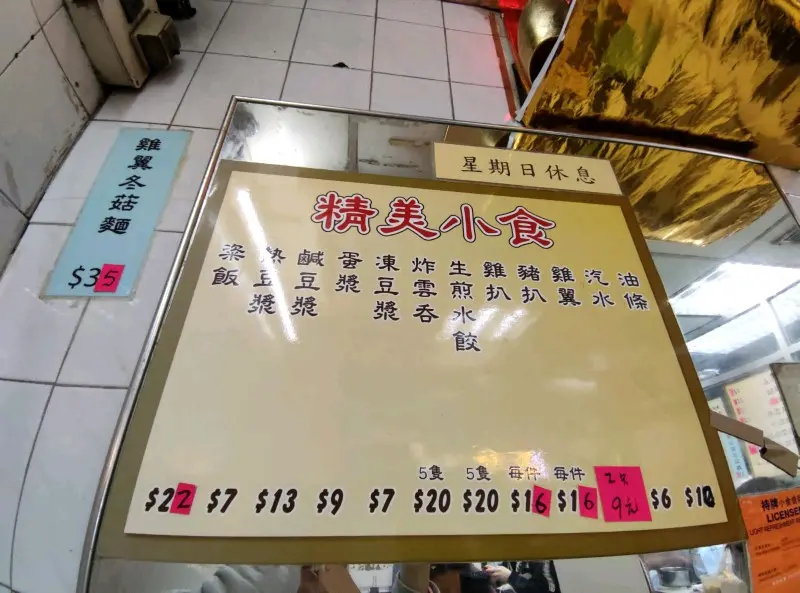 雞翼冬菇麵
$35
星期日休息
精美小食
粢飯
熱豆漿
鹹豆漿
蛋漿
凍豆漿
炸雲吞
生煎水餃
雞扒
豬扒
雞翼
汽水
油條
5隻 5隻 每件 每件
$22 $7 $13 $9 $7 $20 $20 $16 $16 9元 $6 $10
特牌小食
LICENSE
LIGHT REFRESHMENT